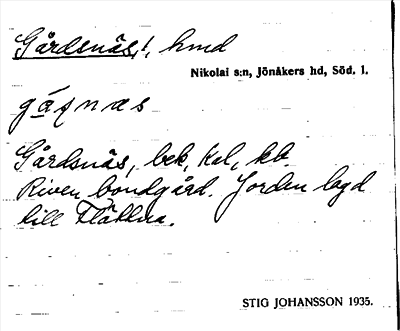 Gårdsnäs, f, hmd
Nikolai s:n, Jönåkers hd, Söd. l.
gáṣnæs
Gårdsnäs, bek, Kal, kb.
Riven bondgård. Jorden lagd
till Flättna.
STIG JOHANSSON 1935.